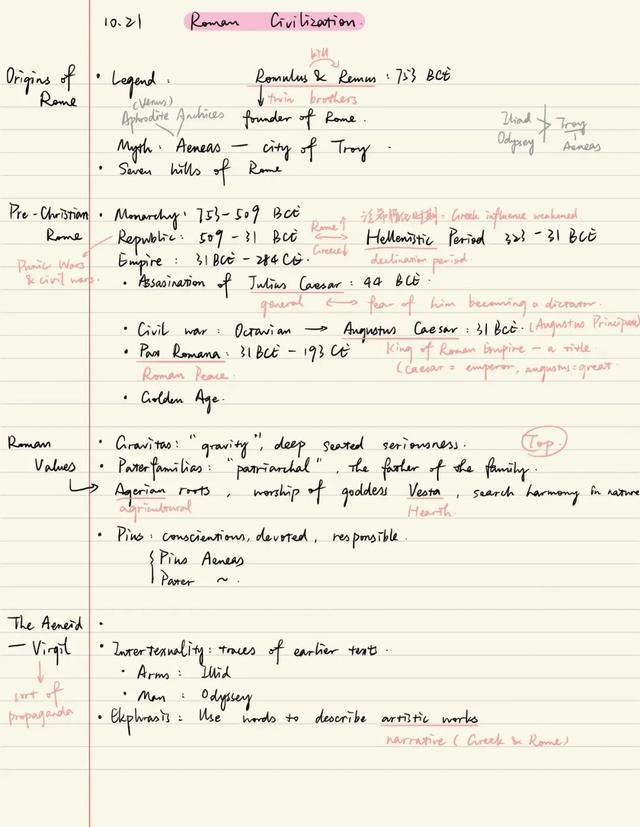 10.21 Roman Civilization.
kill
Origins of Rome
• Legend : Romulus & Remus : 753 BCE
twin brothers
(Venus)
Aphrodite Anchices
founder of Rome.
Iliad
Odyssey
Troy
Aeneas
Myth : Aeneas — city of Troy .
• Seven hills of Rome
Pre-Christian Rome
• Monarchy : 753-509 BCE
Greek influence weakened.
Republic : 509-31 BCE
Rome↑
Greece↓
Hellenistic Period 323-31 BCE
Punic Wars
& civil wars.
Empire : 31 BCE - 284 CE.
declination period.
• Assasination of Julius Caesar : 44 BCE.
general ⟷ fear of him becoming a dictator.
• Civil war : Octavian → Augustus Caesar : 31 BCE. (Augustus Principus)
• Pax Romana : 31 BCE - 193 CE
King of Roman Empire — a title
Roman Peace.
(Caesar = emperor, augustus : great.
• Golden Age.
Roman Values
• Gravitas : "gravity", deep seated seriousness.
Top.
• Paterfamilias : "patriarchal", the father of the family.
Agerian roots , worship of goddess Vesta , search harmony in nature
agricultural
Hearth.
• Pius : conscientious, devoted, responsible.
{ Pius Aeneas
Pater ~ .
The Aeneid
— Virgil
•
• Intertexuality : traces of earlier texts.
• Arms : Illid
• Man : Odyssey
sort of
propaganda
• Ekphrasis : Use words to describe artistic works
narrative ( Greek & Rome )